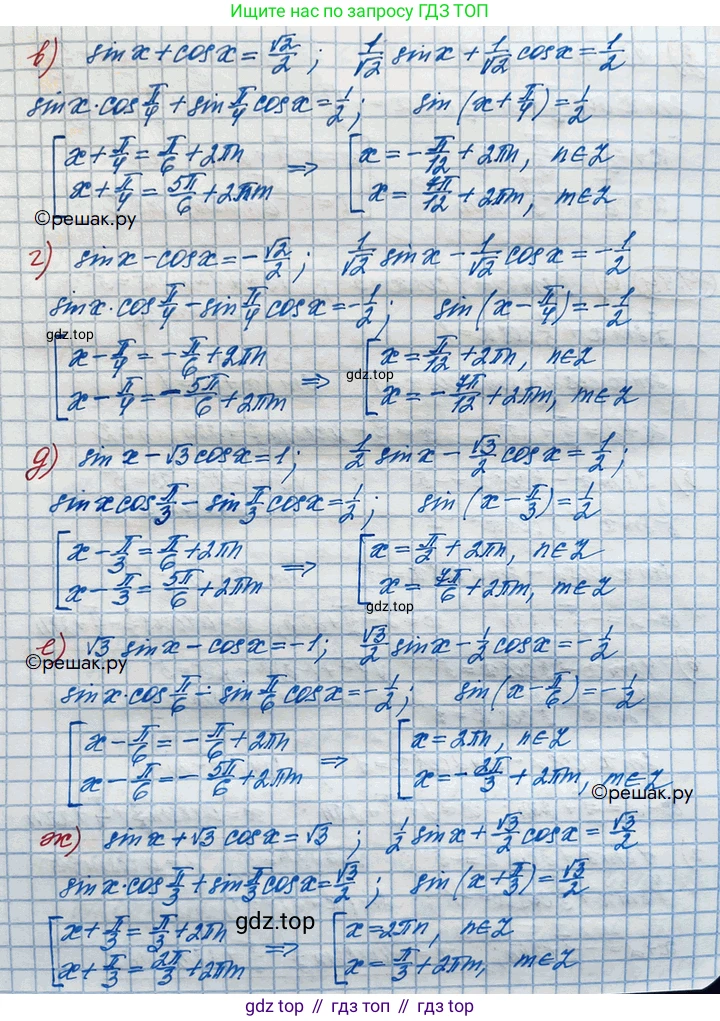 Ищите нас по запросу ГДЗ ТОП
в) sin x + cos x = √2/2 ; 1/√2 sin x + 1/√2 cos x = 1/2
sin x · cos π/4 + sin π/4 cos x = 1/2 ; sin (x + π/4) = 1/2
[ x + π/4 = π/6 + 2πn ⇒ [ x = -π/12 + 2πn, n ∈ Z
x + π/4 = 5π/6 + 2πm x = 7π/12 + 2πm, m ∈ Z
©решак.ру
г) sin x - cos x = -√2/2 ; 1/√2 sin x - 1/√2 cos x = -1/2
sin x · cos π/4 - sin π/4 cos x = -1/2 ; sin (x - π/4) = -1/2
gdz.top
[ x - π/4 = -π/6 + 2πn ⇒ [ x = π/12 + 2πn, n ∈ Z
gdz.top
x - π/4 = -5π/6 + 2πm x = -7π/12 + 2πm, m ∈ Z
д) sin x - √3 cos x = 1 ; 1/2 sin x - √3/2 cos x = 1/2 ;
sin x cos π/3 - sin π/3 cos x = 1/2 ; sin (x - π/3) = 1/2
[ x - π/3 = π/6 + 2πn ⇒ [ x = π/2 + 2πn, n ∈ Z
x - π/3 = 5π/6 + 2πm x = 7π/6 + 2πm, m ∈ Z
gdz.top
е) √3 sin x - cos x = -1 ; √3/2 sin x - 1/2 cos x = -1/2
©решак.ру
sin x · cos π/6 - sin π/6 cos x = -1/2 ; sin (x - π/6) = -1/2
[ x - π/6 = -π/6 + 2πn ⇒ [ x = 2πn, n ∈ Z
x - π/6 = -5π/6 + 2πm x = -2π/3 + 2πm, m ∈ Z
©решак.ру
ж) sin x + √3 cos x = √3 ; 1/2 sin x + √3/2 cos x = √3/2
sin x · cos π/3 + sin π/3 cos x = √3/2 ; sin (x + π/3) = √3/2
gdz.top
[ x + π/3 = π/3 + 2πn ⇒ [ x = 2πn, n ∈ Z
x + π/3 = 2π/3 + 2πm x = π/3 + 2πm, m ∈ Z
gdz.top // гдз топ // гдз.top